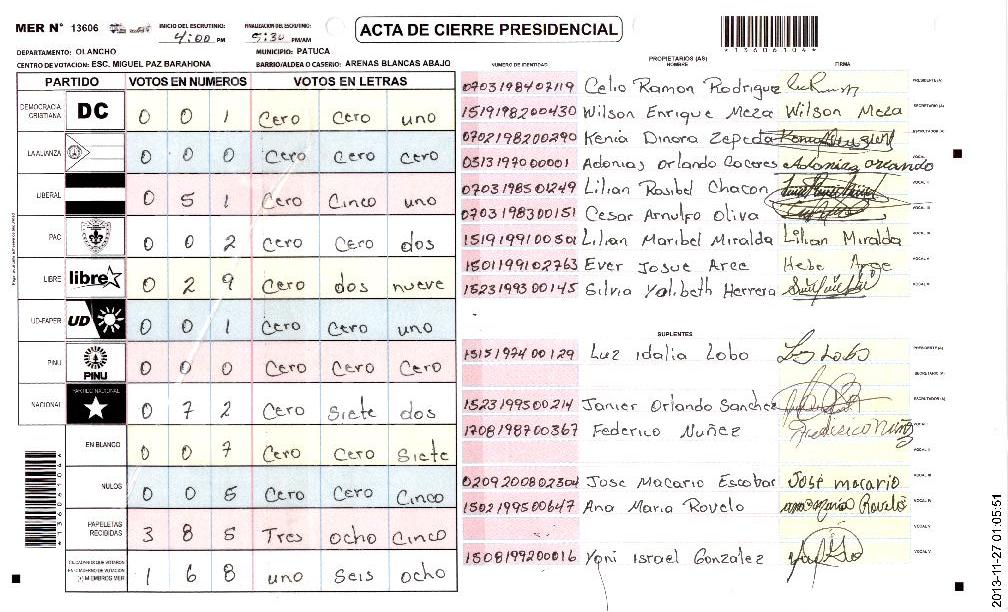 MER N° 13606 INICIO DEL ESCRUTINIO: 4:00 PM FINALIZACION DEL ESCRUTINIO: 5:30 PM/AM
ACTA DE CIERRE PRESIDENCIAL
*13606104*
DEPARTAMENTO: OLANCHO MUNICIPIO: PATUCA
CENTRO DE VOTACION: ESC. MIGUEL PAZ BARAHONA BARRIO/ALDEA O CASERIO: ARENAS BLANCAS ABAJO
PARTIDO VOTOS EN NUMEROS VOTOS EN LETRAS
DEMOCRACIA CRISTIANA DC 0 0 1 Cero Cero uno
LA ALIANZA 0 0 0 Cero Cero Cero
LIBERAL 0 5 1 Cero Cinco uno
PAC 0 0 2 Cero Cero dos
LIBRE libre 0 2 9 Cero dos nueve
UD-FAPER UD 0 0 1 Cero Cero uno
PINU PINU 0 0 0 Cero Cero Cero
NACIONAL PARTIDO NACIONAL 0 7 2 Cero Siete dos
EN BLANCO 0 0 7 Cero Cero Siete
NULOS 0 0 5 Cero Cero Cinco
PAPELETAS RECIBIDAS 3 8 5 Tres ocho Cinco
CIUDADANOS QUE VOTARON EN CUADERNO DE VOTACION (+) MIEMBROS MER 1 6 8 uno Seis ocho
*13606104*
PROPIETARIOS (AS)
NUMERO DE IDENTIDAD NOMBRE FIRMA
0703198402119 Celio Ramon Rodriguez PRESIDENTE(A)
1519198200430 Wilson Enrique Meza Wilson Meza SECRETARIO (A)
0702198200290 Kenia Dinora Zepeda ESCRUTADOR (A)
0313197000001 Adonias Orlando Caceres Adonias orlando VOCAL I
0703198501249 Lilian Rosibel Chacon VOCAL II
0703198300151 Cesar Arnulfo Oliva VOCAL III
1519199100501 Lilian Maribel Miralda Lilian Miralda VOCAL IV
1501199102763 Ever Josue Arce Hebe Arge VOCAL V
1523199300145 Silvia Yalibeth Herrera
SUPLENTES
1515197400129 Luz idalia Lobo Luz Lobo PRESIDENTE (A)
SECRETARIO (A)
1523199500214 Janier Orlando Sanchez ESCRUTADOR (A)
1708198700367 Federico Nuñez Frederico Nuñez VOCAL I
VOCAL II
0209200802304 Jose Macario Escobar José macario VOCAL III
1502199500647 Ana Maria Rovelo ana Maria Rovelo VOCAL IV
VOCAL V
1508199200016 Yoni Israel Gonzalez
2013-11-27 01:05:51